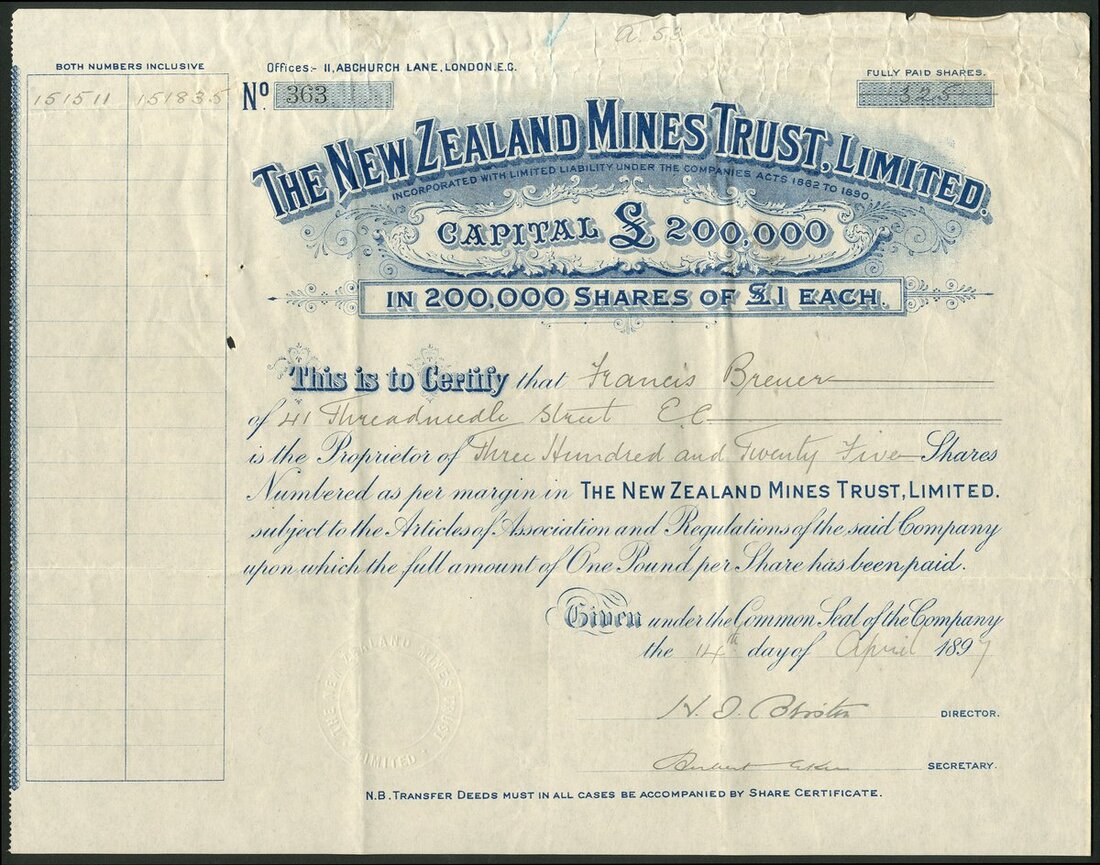 A. 53
BOTH NUMBERS INCLUSIVE
151511 151835
Offices:- 11, ABCHURCH LANE, LONDON. E.C.
No. 363
FULLY PAID SHARES.
325
THE NEW ZEALAND MINES TRUST, LIMITED.
INCORPORATED WITH LIMITED LIABILITY UNDER THE COMPANIES ACTS 1862 TO 1890.
CAPITAL £ 200,000
IN 200,000 SHARES OF £1 EACH.
This is to Certify that Francis Breuer
of 41 Threadneedle Street E.C.
is the Proprietor of Three Hundred and Twenty Five Shares
Numbered as per margin in THE NEW ZEALAND MINES TRUST, LIMITED.
subject to the Articles of Association and Regulations of the said Company
upon which the full amount of One Pound per Share has been paid.
Given under the Common Seal of the Company
the 14th day of April 1897
H. I.
DIRECTOR.
Herbert
SECRETARY.
THE NEW ZEALAND MINES TRUST LIMITED
N.B. TRANSFER DEEDS MUST IN ALL CASES BE ACCOMPANIED BY SHARE CERTIFICATE.